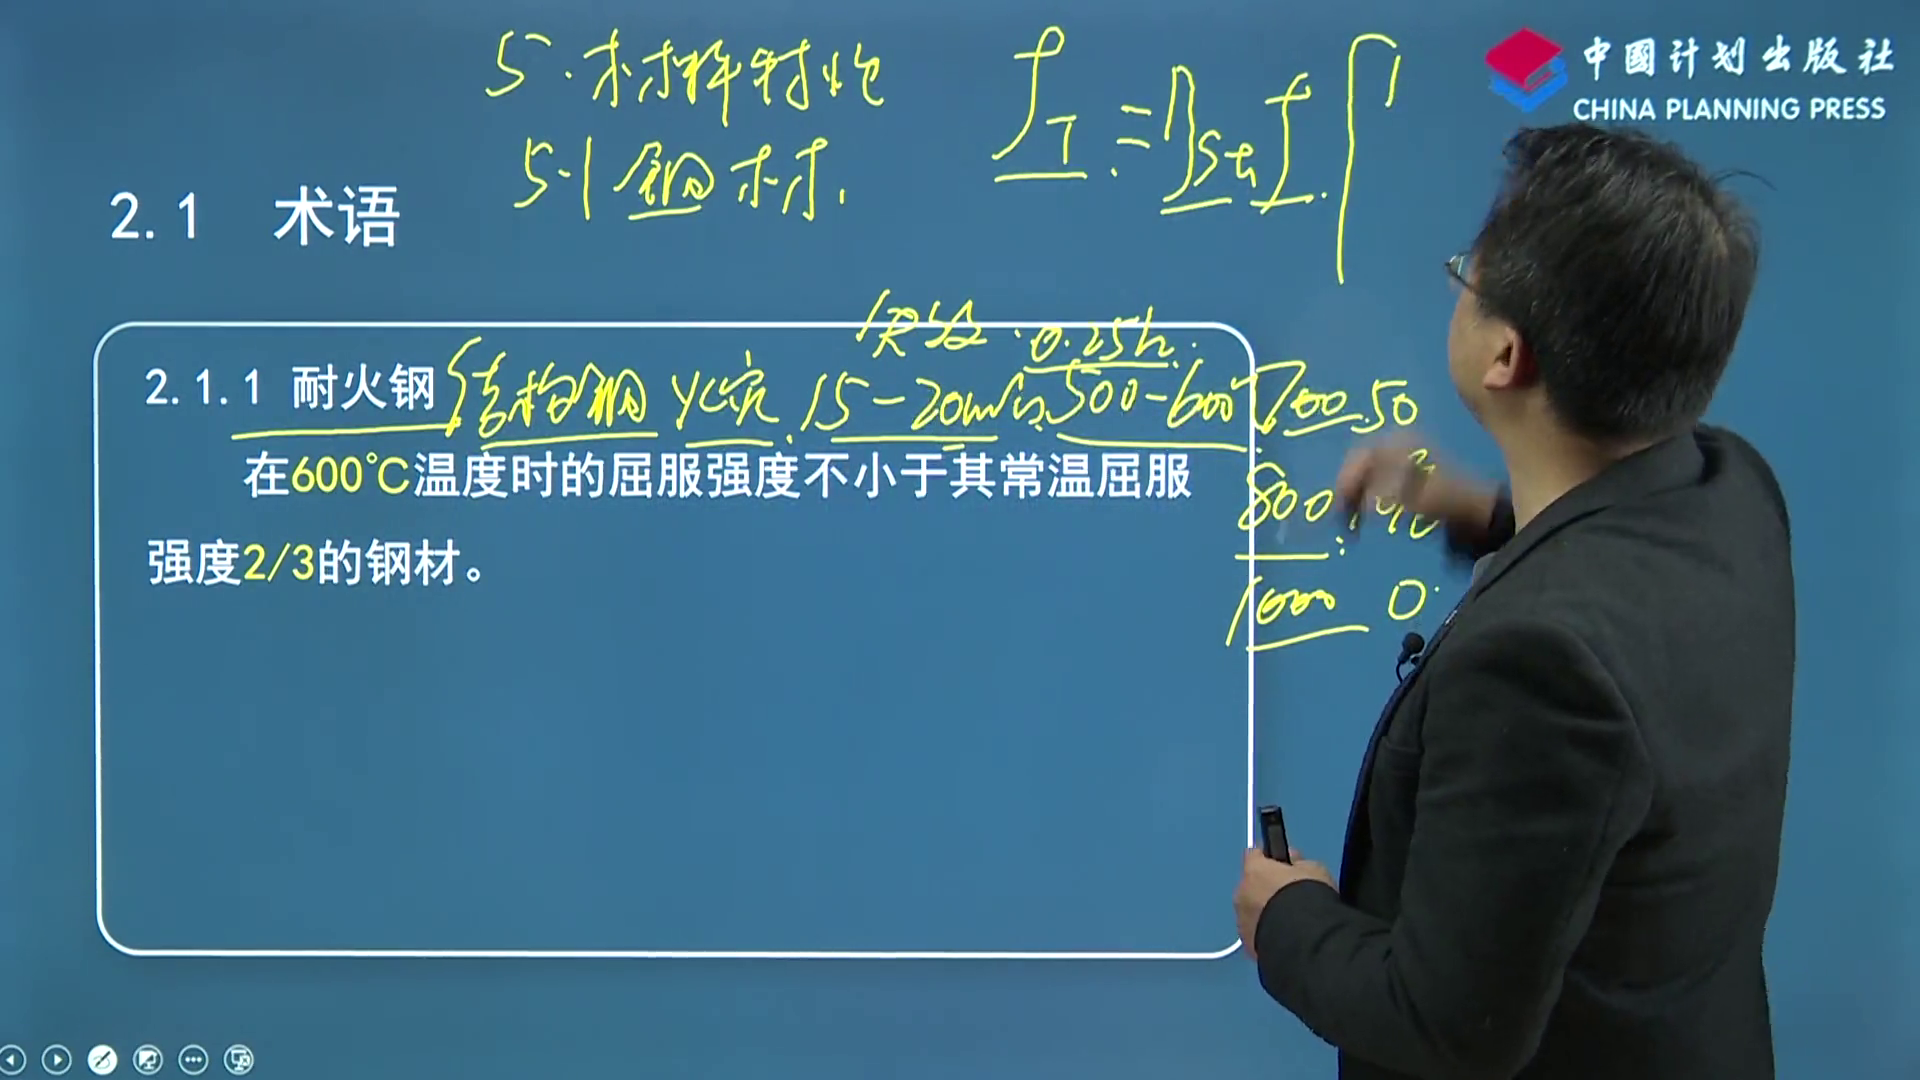 5.材料特性
5.1 钢材.
fT.=ηsTf.
中國计划出版社
CHINA PLANNING PRESS
2.1 术语
0.25h.
2.1.1 耐火钢 结构钢 15-20min.500-600℃
700.50
在600℃温度时的屈服强度不小于其常温屈服
800
强度2/3的钢材。
1000 0.